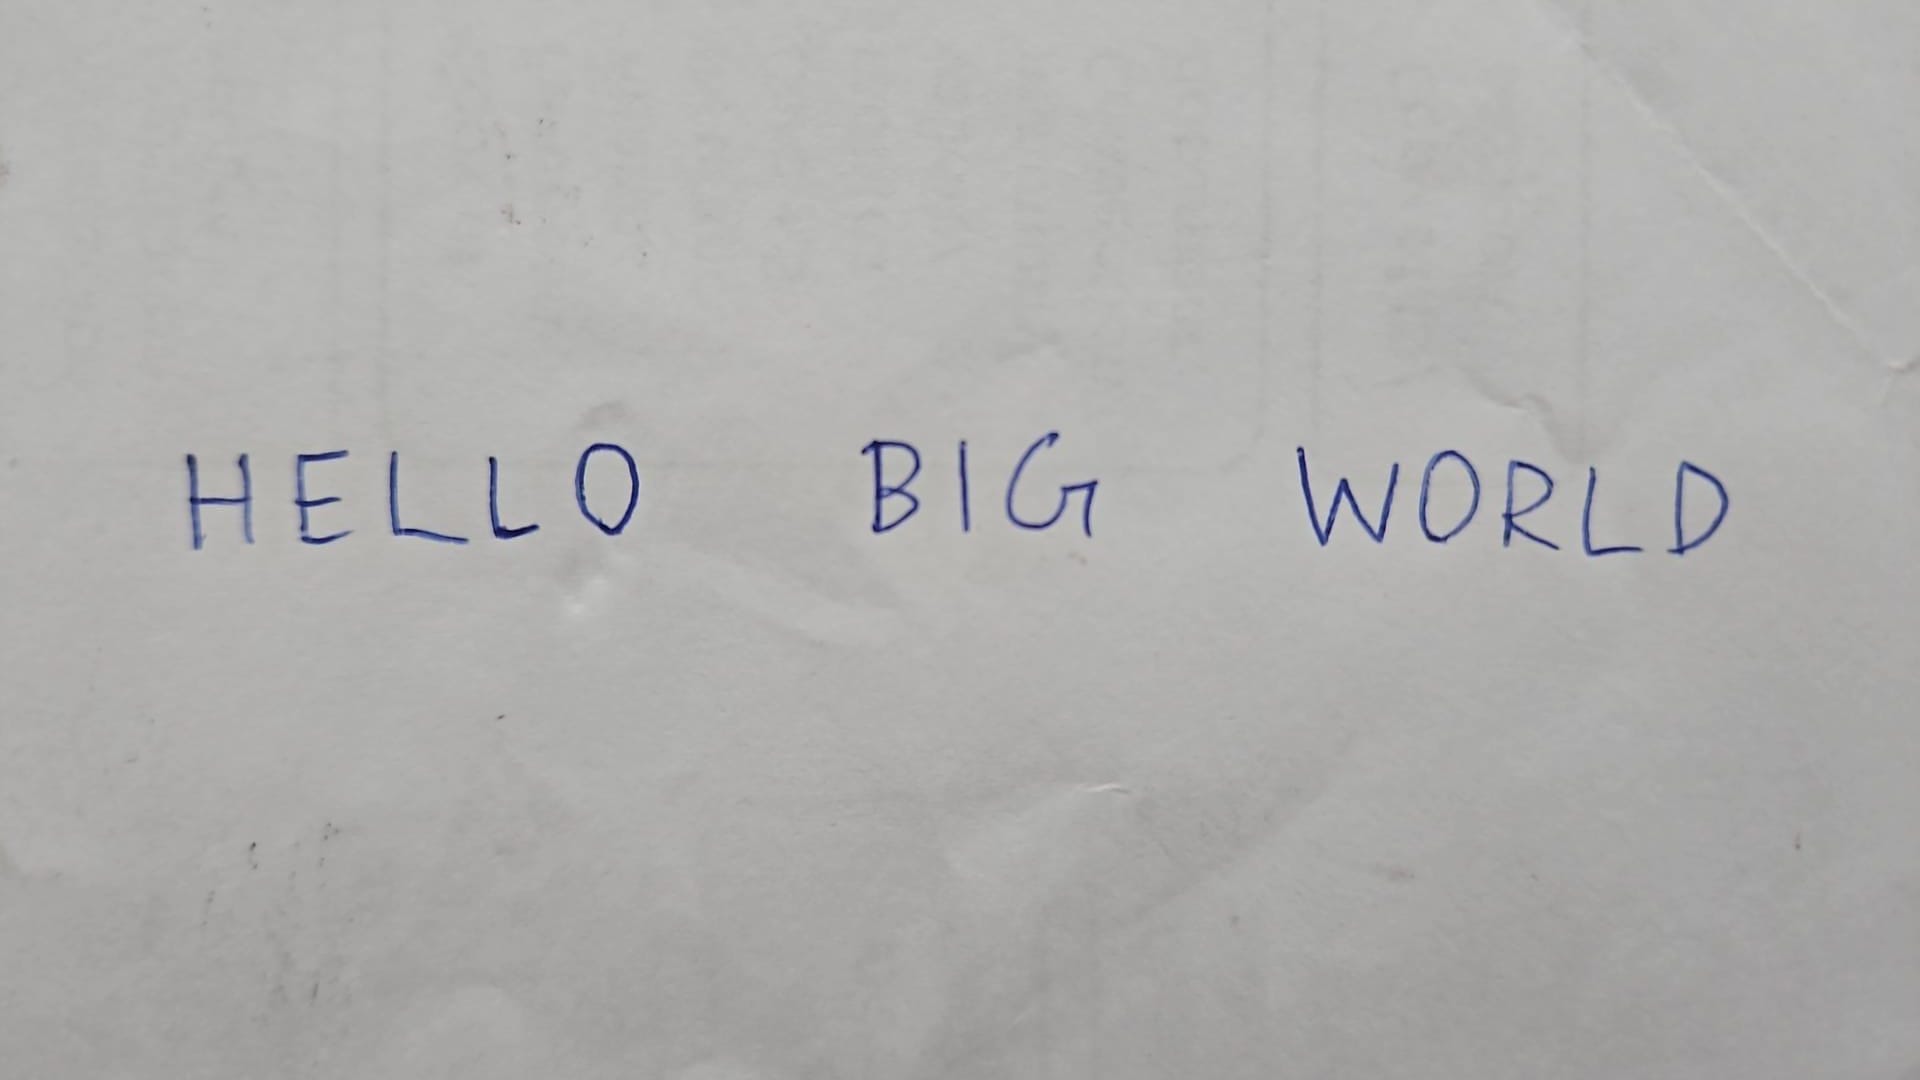 HELLO BIG WORLD